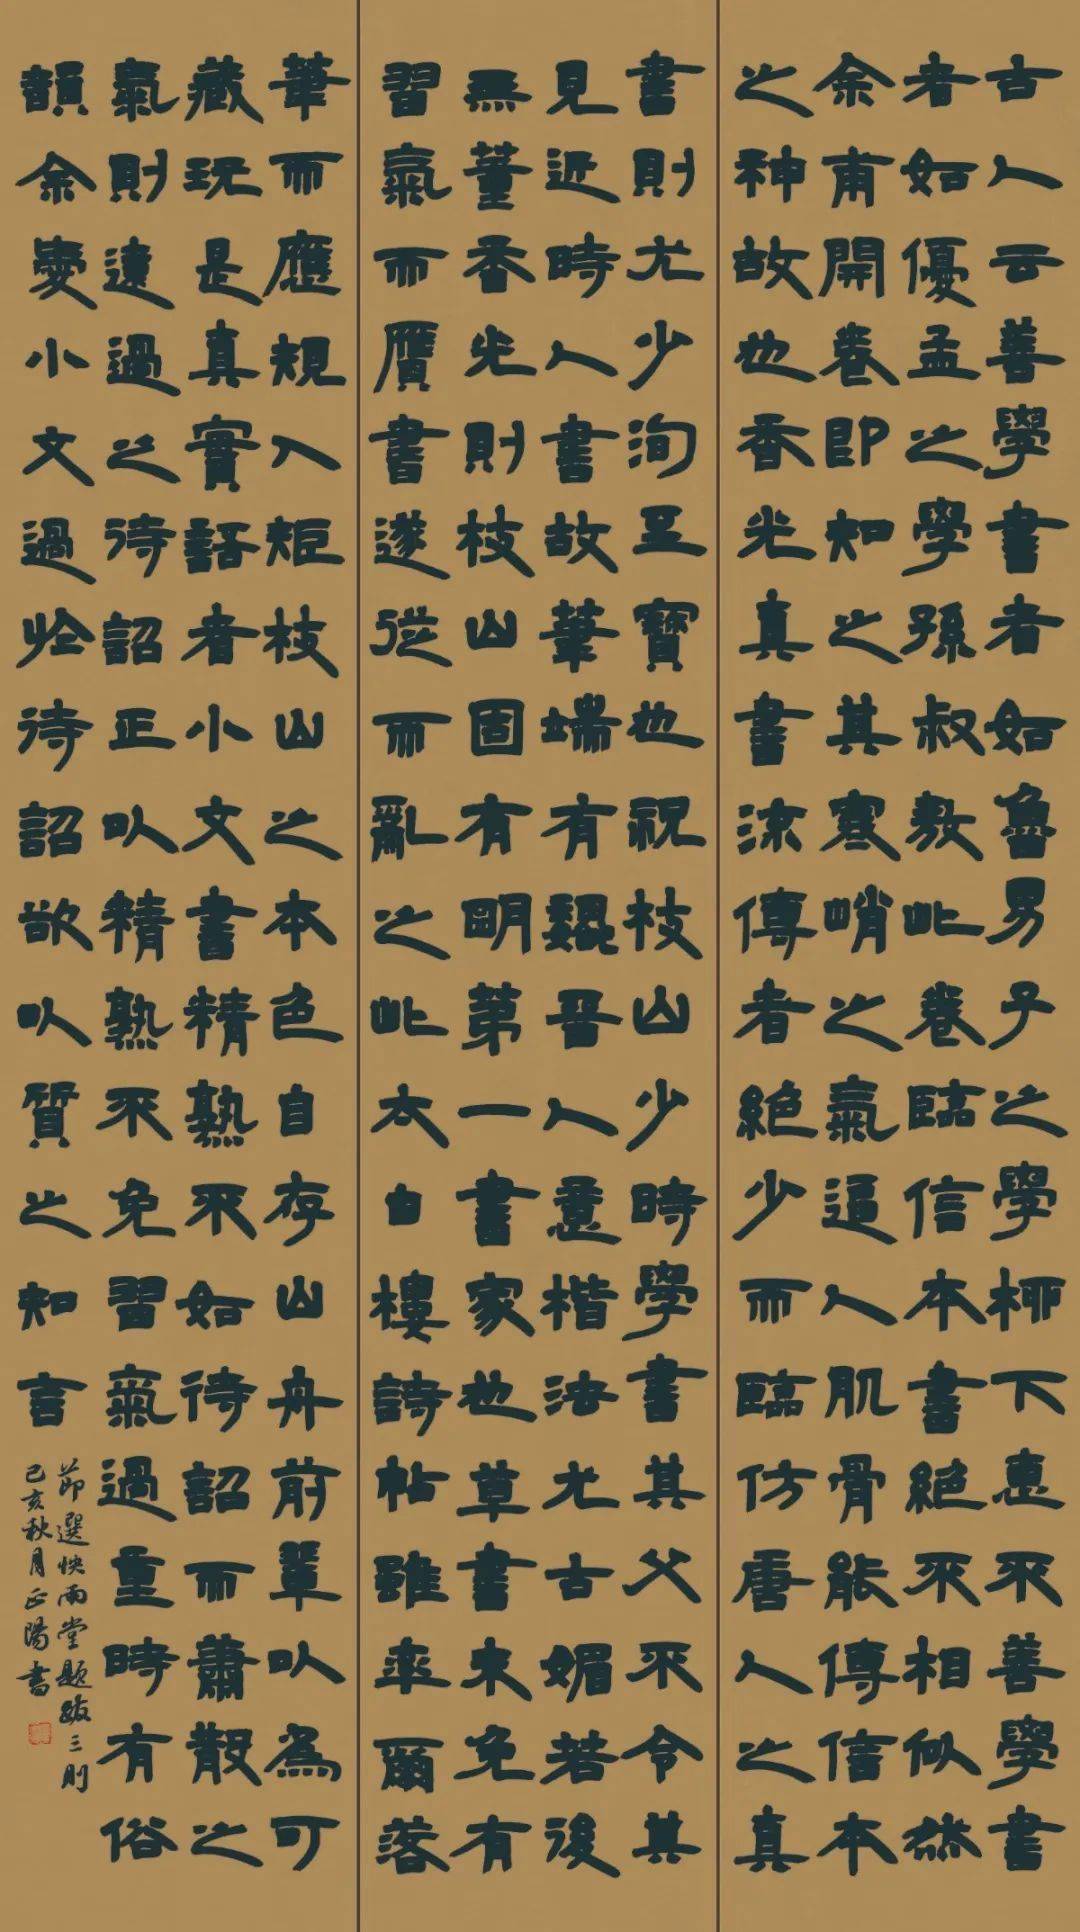 古人云善學書者如魯男子之學柳下惠不善學書
者如優孟之學孫叔敖此卷臨信本書絕不相似然
余甫開卷即知之其寒峭之氣逼人肌骨能傳信本
之神故也香光真書流傳者絕少而臨仿唐人之真
書則尤少洵至寶也祝枝山少時學書其父不令其
見近時人書故筆端有魏晉人意楷法尤古媚若後
無董香光則枝山固有明第一書家也草書未免有
習氣而贋書遂從而亂之此太白樓詩帖雖率爾落
筆而應規入矩枝山之本色自存山舟前輩以為可
藏玩是真實語者小文書精熟不如待詔而蕭散之
氣則遠過之待詔正以精熟不免習氣過重時有俗
韻余愛小文過於待詔欲以質之知言
節選快雨堂題跋三則
己亥秋月正陽書